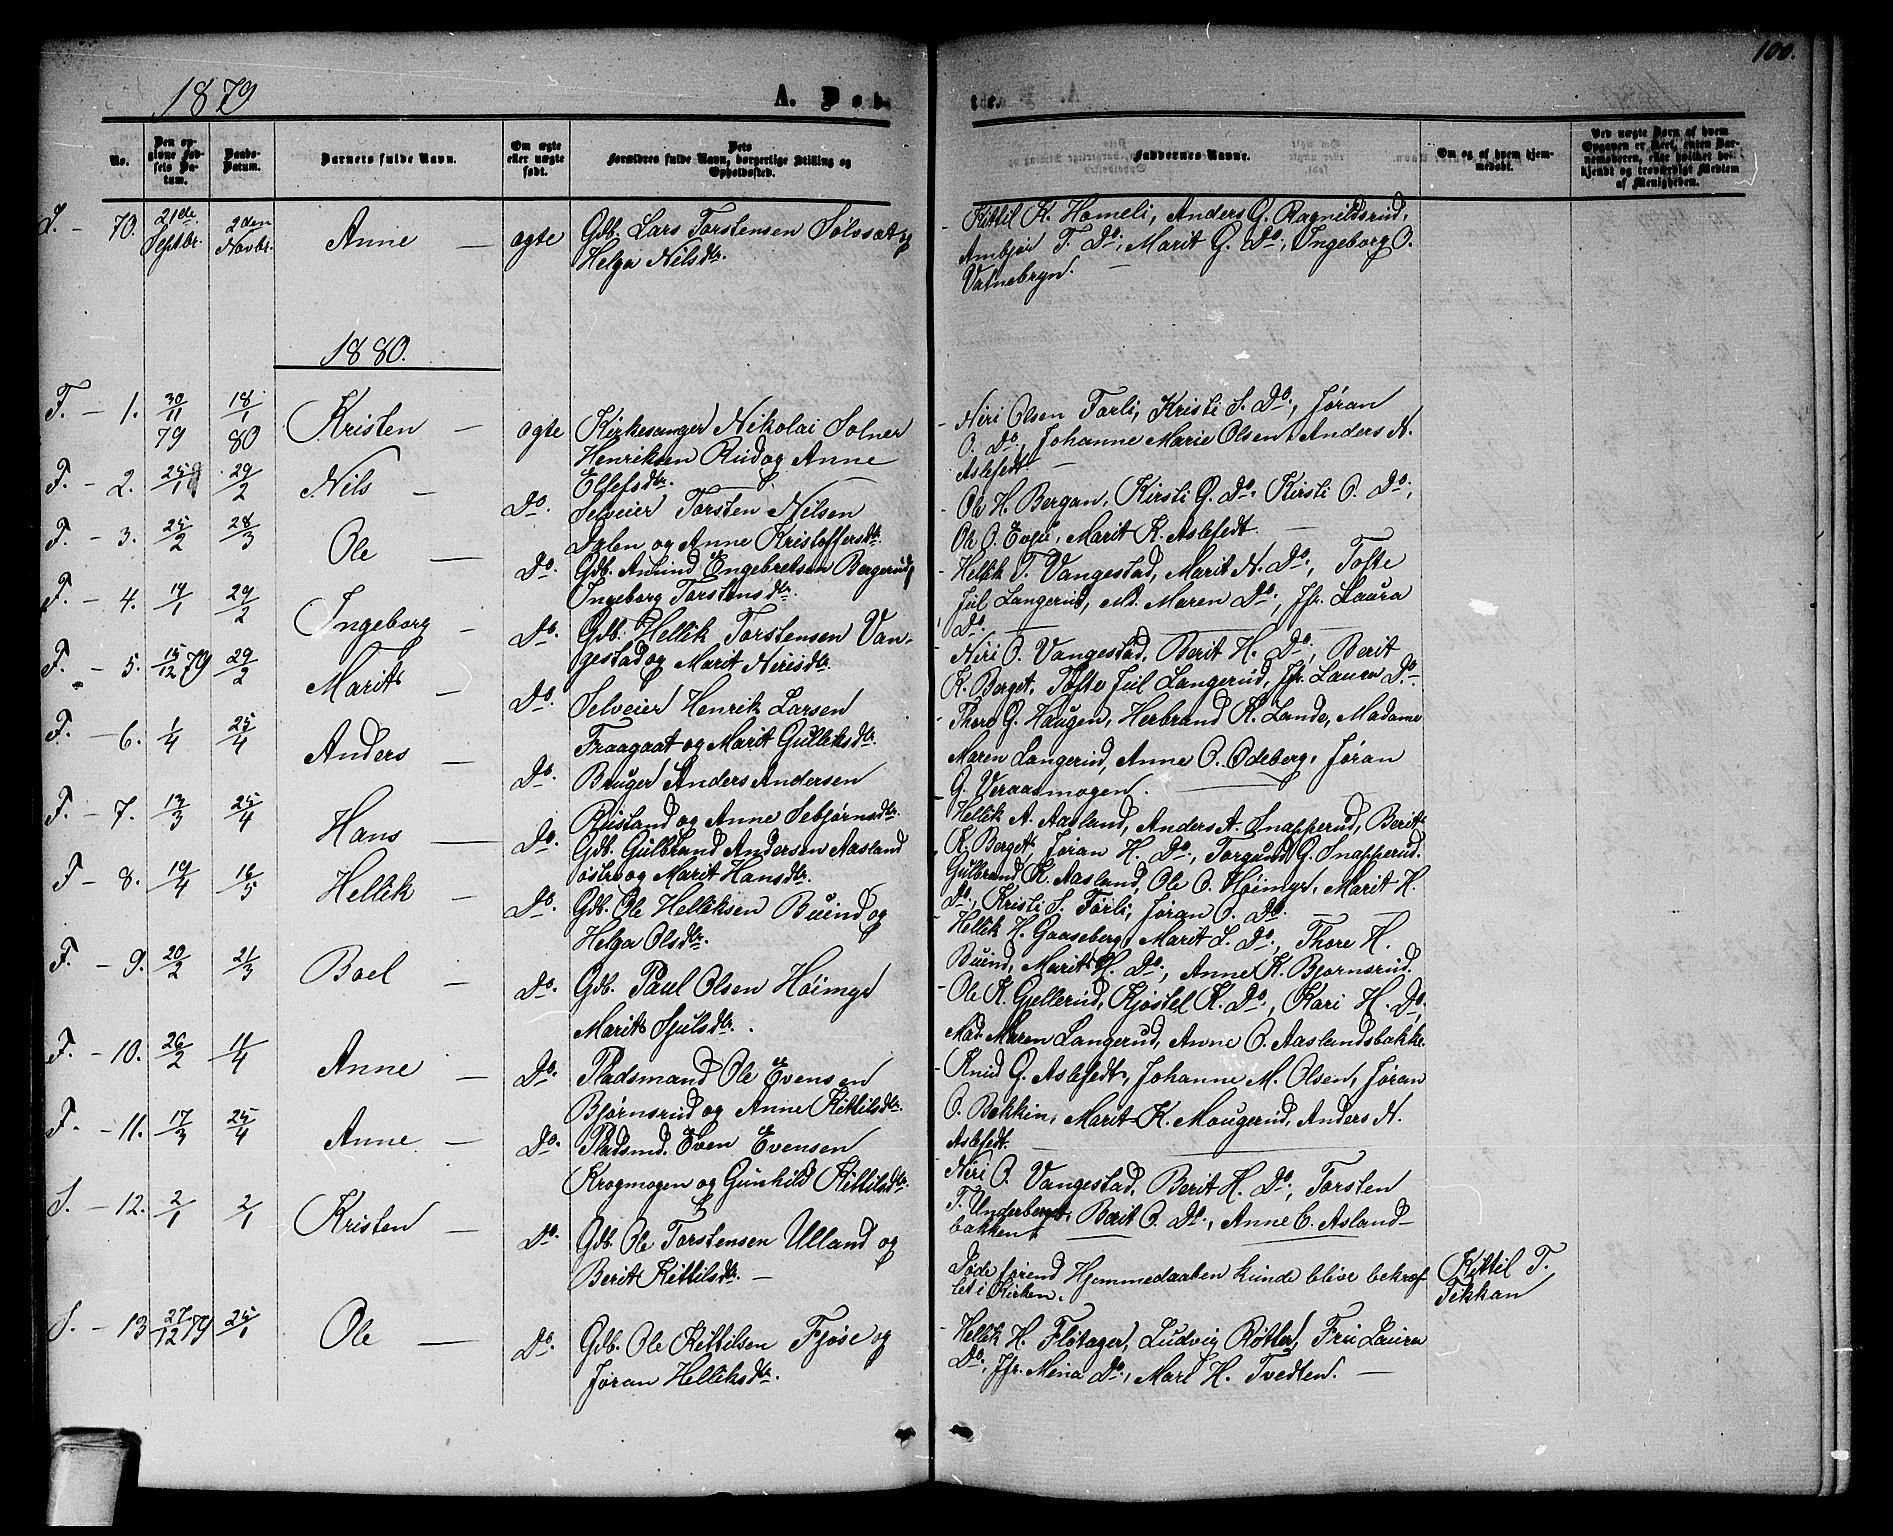 100.
1879
A. Døb-
te.
No.
Den op-
givne Fød-
sels Da-
tum.
Daabs-
Datum.
Barnets fulde Navn.
Om ægte
eller uægte
født.
Dets
Forældres fulde Navn, borgerlige Stilling og
Opholdssted.
Faddernes Navne.
Om og af hvem hjem-
medøbt.
Ved uægte Børn af hvem
Opgaven er skeet, enten Bar-
nemoderen, eller hvilket be-
kjendt og troværdigt Medlem
af Menigheden.
70. 21de Septbr. 2den Novbr. Anne — ægte
Gdb. Lars Torstensen Sølvsæt og
Helga Nilsdtr.
Kittil K. Homeli, Anders G. Ragnildsrud,
Ambjør T. Do, Marit G. Do, Ingeborg O.
Vatnebryn. —
1880.
F. – 1. 30/11 79 18/1 80 Kristen — ægte
Kirkesanger Nikolai Solner
Henriksen Rud og Anne
Elsefsdtr. —
Niri Olsen Førli, Kristi S. Do, Jøran
O. Do, Johanne Marie Olsen, Anders N.
Aslefedt —
F. – 2. 25/1 29/2 Nils — Do.
Selveier Torsten Nilsen
Dalen og Anne Kristoffersdtr.
Ole H. Bergan, Kirsti G. Do, Kirsti O. Do,
Ole O. Evju, Marit K. Aslefedt —
F. – 3. 25/2 28/3 Ole — Do.
Gdb. Anund Engebretsen Bergerud,
Ingeborg Torstensdtr.
Hellik T. Vangestad, Marit N. Do, Tofte
Jul Langerud, Md. Maren Do, Jfr. Laura
Do. —
F. – 4. 19/1 29/2 Ingeborg — Do.
Gdb. Hellik Torstensen Van-
gestad og Marit Nirisdtr.
Niri O. Vangestad, Berit H. Do, Berit
K. Berget, Tofte Jul Langerud, Jfr. Laura Do —
F. – 5. 15/12 79 29/2 Marit — Do.
Selveier Henrik Larsen
Fraagaat og Marit Gulliksdtr.
Thore G. Haugen, Herbrand K. Lande, Madame
Maren Langerud, Anne O. Odeberg, Jøran
G. Veraasmogen. —
F. – 6. 1/4 25/4 Anders — Do.
Bruger Anders Andersen
Rustand og Anne Sebjørnsdtr.
Hellik A. Aasland, Anders A. Snapperud, Berit
K. Berget, Jøran H. Do, Torgund G. Snapperud.
F. – 7. 13/3 25/4 Hans — Do.
Gdb. Gulbrand Andersen Aasland
østre og Marit Hansdtr.
Gulbrand K. Aasland, Ole O. Høimyr, Marit H.
Do, Kristi S. Førli, Jøran O. Do. —
F – 8. 19/4 16/5 Hellik — Do.
Gdb. Ole Helliksen Buind og
Helga Olsdtr.
Hellik H. Gaaseberg, Marit L. Do, Thore H.
Buind, Marit H. Do, Anne K. Bjørnsrud.
F. – 9. 20/2 21/3 Boel — Do.
Gdb. Paul Olsen Høimyr
Marit Sjulsdtr.
Ole K. Gullerud, Kjøstel K. Do, Kari H. Do,
Mad. Maren Langerud, Anne O. Aaslandsbakke.
F. – 10. 26/2 11/4 Anne — Do.
Pladsmand Ole Evensen
Bjørnsrud og Anne Kittilsdtr.
Knud G. Aslefedt, Johanne M. Olsen, Jøran
O. Bekkin, Marit K. Mougerud, Anders N.
Aslefedt. —
F. – 11. 17/3 25/4 Anne — Do.
Pladsmd. Even Evensen
Krogmogen og Gunhild Kittilsdtr.
Niri O. Vangestad, Berit H. Do, Torsten
T. Underberget, Berit O. Do, Anne C. Asland-
bakken. —
S. – 12. 2/1 2/1 Kristen — Do.
Gdb. Ole Torstensen Ulland og
Berit Kittilsdtr. —
Døde førend Hjemmedaaben kunde blive bekræf-
tet i Kirken.
Kittil T.
Tekkan
S. – 13 27/12 79 25/1 Ole — Do.
Gdb. Ole Kittilsen Fjøse og
Jøran Helliksdtr.
Hellik H. Fløtager, Ludvig Røtter, Fru Laura
Do, Jfr. Mina Do, Mari H. Tvedten. —